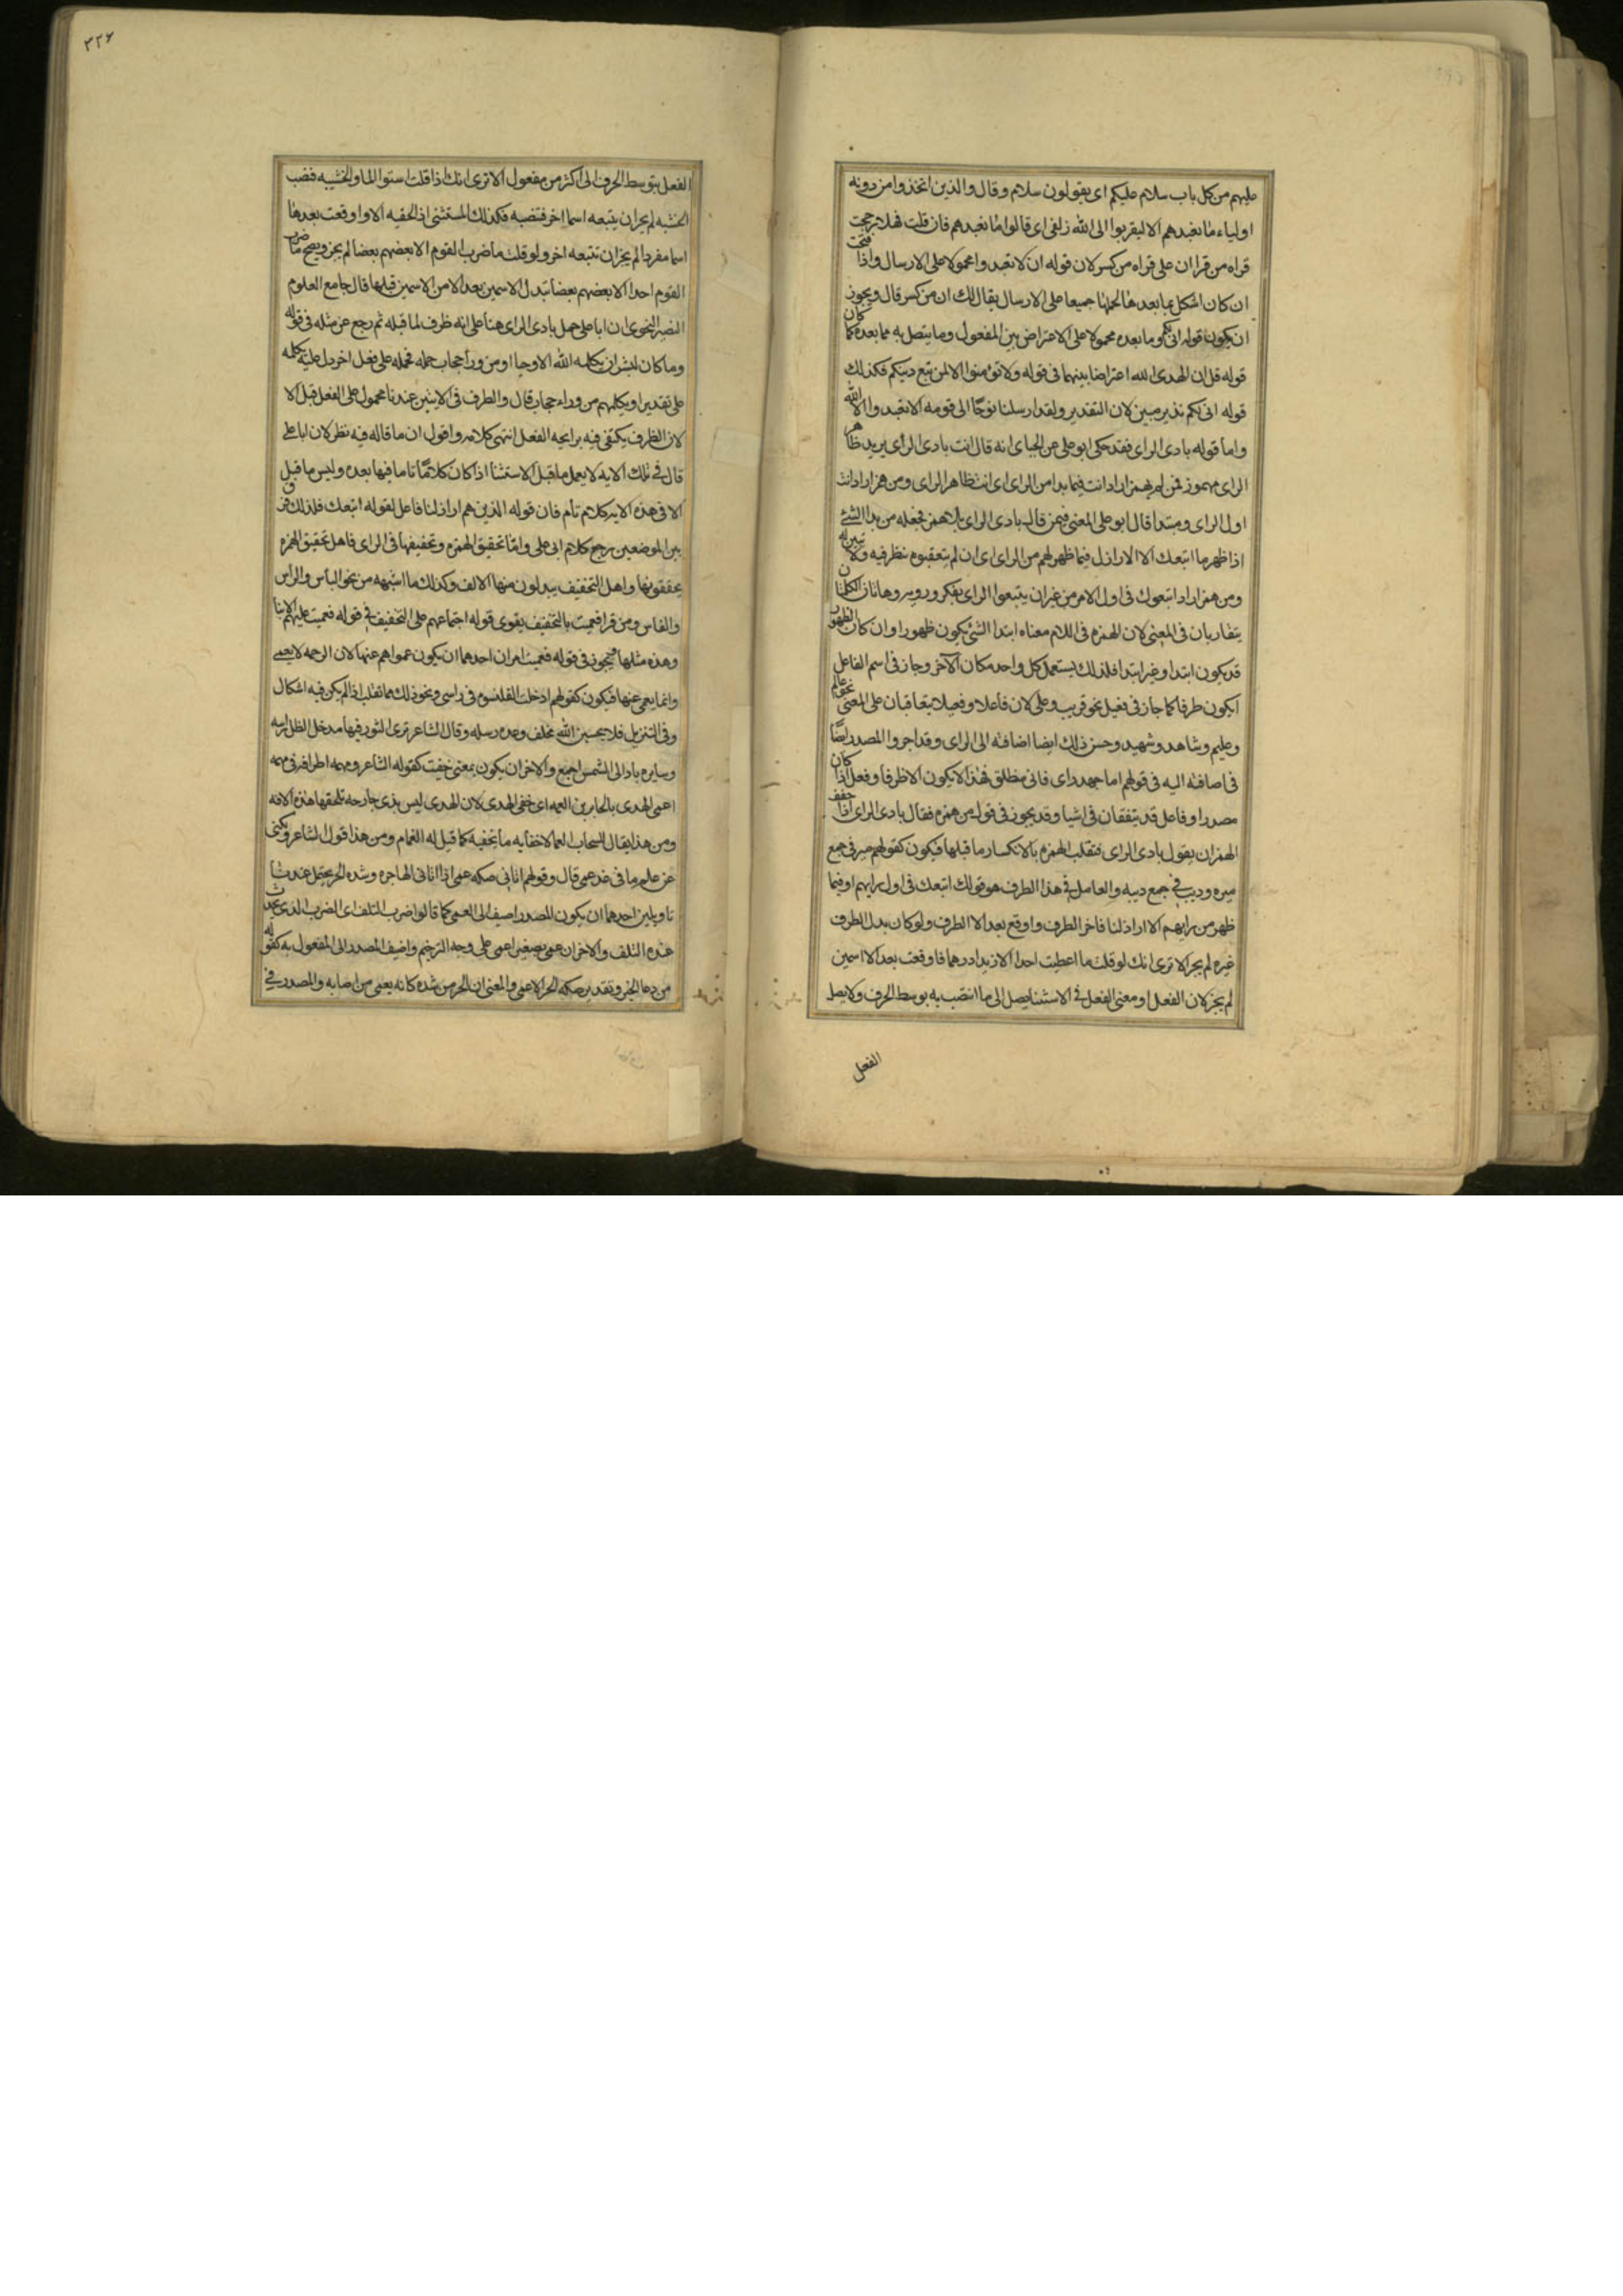 عليهم من كل باب سلام عليكم اى يقولون سلام وقال والذين اتخذوا من دونه
اولياء ما نعبدهم الا ليقربوا الى الله زلفى اى قالوا ما نعبدهم فان قلت فهلا رجحت
قراه من قرا ان على قراه من كسر لان قوله ان لا تعبدوا محمولا على الارسال واذا فتحت
ان كان اشكل بما بعدها لحملها جميعا على الارسال يقال لك ان من كسر قال ويجوز
ان يكون قوله انى لكم وما بعده محمولا على الاعتراض بين المفعول وما يتصل به مما بعده كما كان
قوله قل ان الهدى هدى الله اعتراضا بينهما فى قوله ولا تؤمنوا الا لمن تبع دينكم فكذلك
قوله انى لكم نذير مبين لان التقدير ولقد ارسلنا نوحًا الى قومه الا تعبدوا الا الله
واما قوله بادى الراى فقد حكى ابو على عن الجباى انه قال انت بادى الراى يريد ظاهر
الراى مهموز فمن لم يهمز اراد انت فيما بدا من الراى اى انت ظاهر الراى ومن همز اراد انت
اول الراى ومبتدا قال ابو على المعنى فيمن قال بادى الراى بلا همز فجعله من بدا الشئ
اذا ظهر ما اتبعك الا الاراذل فيما ظهر لهم من الراى اى ان لم يتعقبوه بنظر فيه ولا تبين له
ومن همز اراد اتبعوك فى اول الامر من غير ان يتبعوا الراى بفكر ورويه وهاتان الكلمتان
يتقاربان فى المعنى لان الهمزه فى اللام معناه ابتدا الشئ يكون ظهورا وان كان الظهور
قد يكون ابتدا وغير ابتدا فلذلك يستعمل كل واحد مكان الاخر وجاز فى اسم الفاعل
ان يكون ظرفا كما جاز فى فعيل نحو قريب وملى لان فاعلا وفعيلا يتعاقبان على المعنى نحو عالم
وعليم وشاهد وشهيد وحسن ذلك ايضا اضافته الى الراى وقد اجروا المصدر ايضًا
فى اضافته اليه فى قولهم اما جهد راى فانى منطلق فهذا لا يكون الا ظرفا وفعل اذا كان
مصدرا وفاعل قد يتفقان فى اشيا وقد يجوز فى قول من همزه فقال بادى الراى اذا خفف
الهمز ان يقول بادى الراى فتقلب الهمزه يا لانكسار ما قبلها فيكون كقولهم مير فى جمع
ميره وديب فى جمع ديبه والعامل فى هذا الظرف هو قولك اتبعك فى اول رايهم او فيما
ظهر من رايهم الا اراذلنا فاخر الظرف واوقع بعد الا الظرف ولو كان بدل الظرف
غيره لم يجز الا ترى انك لو قلت ما اعطيت احدا الا زيدا درهما فاوقعت بعد الا اسمين
لم يجز لان الفعل او معنى الفعل فى الاستثنا يصل الى ما انتصب به بوسط الحرف ولا يصل
الفعل
٢٢٦
الفعل بتوسط الحرف الى اكثر من مفعول الا ترى انك اذا قلت استوا الما والخشبه فنصب
الخشبه لم يجز ان يتبعه اسما اخر فتنصبه فكذلك المستثنى اذ الحقته الا واوقعت بعدها
اسما مفردا لم يجز ان تتبعه اخر ولو قلت ما ضرب القوم الا بعضهم بعضا لم يجز ويصح ما ضرب
القوم احدا الا بعضهم بعضا تبدل الاسمين بعد الا من الاسمين قبلها قال جامع العلوم
النصير النحوى ان ابا على حمل بادى الراى هنا على انه ظرف لما قبله ثم رجع عن مثله فى قوله
وما كان لبشر ان يكلمه الله الا وحيا او من ورا حجاب حمله على فعل اخر دل عليه يكلمه
على تقدير او يكلمهم من وراء حجاب قال والظرف فى الايتين عندنا محمول على الفعل قبل الا
لان الظرف يكتفى فيه برايحه الفعل انتهى كلامه واقول ان ما قاله فيه نظر لان ابا على
قال فى تلك الايه لا يعمل ما قبل الاستثنا اذا كان كلامًا تاما فيما بعده وليس ما قبل
الا فى هذه الايه كلام تام فان قوله الذين هم اراذلنا فاعل لقوله اتبعك فلذلك فرق
بين الموضعين رجع كلام ابى على وامّا تحقيق الهمزه وتخفيفها فى الراى فاهل تحقيق الهمزه
يحققونها واهل التخفيف يبدلون منها الالف وكذلك ما اشبهه من نحو الباس والراس
والفاس ومن قرا فعميت بالتخفيف يقوى قوله اجتماعهم على التخفيف فى قوله فعميت عليهم الانبا
وهذه مثلها فيجوز فى قوله فعميت امران احدهما ان يكون عموا هم عنها لان الرحمه لا تعمى
وانما يعمى عنها فيكون كقولهم ادخلت القلنسوه فى راسى ونحو ذلك مما تقلب اذا لم يكن فيه اشكال
وفى التنزيل فلا تحسبن الله مخلف وعده رسله وقال الشاعر ترى الثور فيها مدخل الظل راسه
وسايره باد الى الشمس اجمع والاخر ان يكون بمعنى خفيت كقوله الشاعر ومهمه اطرافه فى مهمه
اعمى الهدى بالجايرين العمه اى خفى الهدى لان الهدى ليس بذى جارحه تلحقها هذه الافه
ومن هذا يقال للسحاب العما لاخفايه ما يخفيه كما قيل له الغمام ومن هذا قول الشاعر ولكنى
عن علم ما فى غد عمى قال وقولهم اتانى صكه عمى اذا اتانى الهاجره وشده الحر يحتمل عندنا
تاويلين احدهما ان يكون المصدر اضيف الى العمى كما قالوا ضرب التلف اى الضرب الذى يحدث
عنده التلف والاخر ان عمى تصغير اعمى على وجه الترخيم واضيف المصدر الى المفعول به كقوله
من دعا الخير وتقديره صكه الحر الاعمى والمعنى ان الحر من شده كانه يعمى من اصابه والمصدر فى